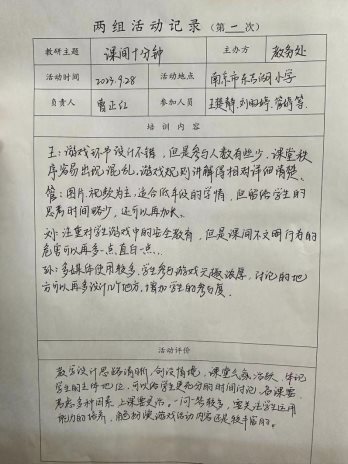 两组活动记录（第一次）
教研主题 课间十分钟 主办方 教务处
活动时间 2023.9.28 活动地点 南京市 小学
负责人 曹正红 参加人员 王 静、刘 婷、管 等
培训内容
王：游戏环节设计不错，但是参与人数有些少，课堂秩
序容易出现混乱，游戏规则讲解得相对详细清楚。
管：图片、视频为主，适合低年级的学情，但留给学生的
思考时间略少，还可以再加长。
刘：注重对学生游戏中的安全教育，但是课间不文明行为的
危害可以再多一点，直白一点。
孙：多媒体使用较多，学生参与游戏兴趣浓厚，讨论的地
方可以再多设计几个地方，增加学生的参与度。
活动评价
教学设计思路清晰，创设情境，课堂气氛活跃，体现
学生的主体地位，可以给学生更充分的时间讨论，备课要
考虑多种因素，上课要灵活。一问一答较多，要关注学生运用
能力的培养，角色扮演游戏活动内容还是较丰富的。